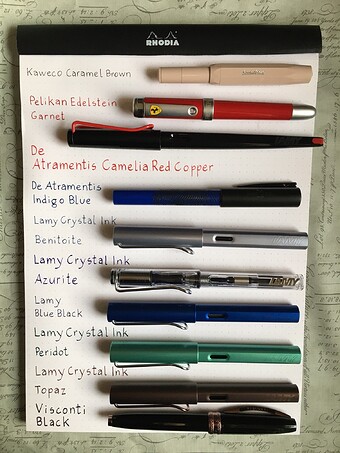 RHODIA
Kaweco Caramel Brown
Pelikan Edelstein
Garnet
De
Atramentis Camelia Red Copper
De Atramentis
Indigo Blue
Lamy Crystal Ink
Benitoite
Lamy Crystal Ink
Azurite
Lamy
Blue Black
Lamy Crystal Ink
Peridot
Lamy Crystal Ink
Topaz
Visconti
Black